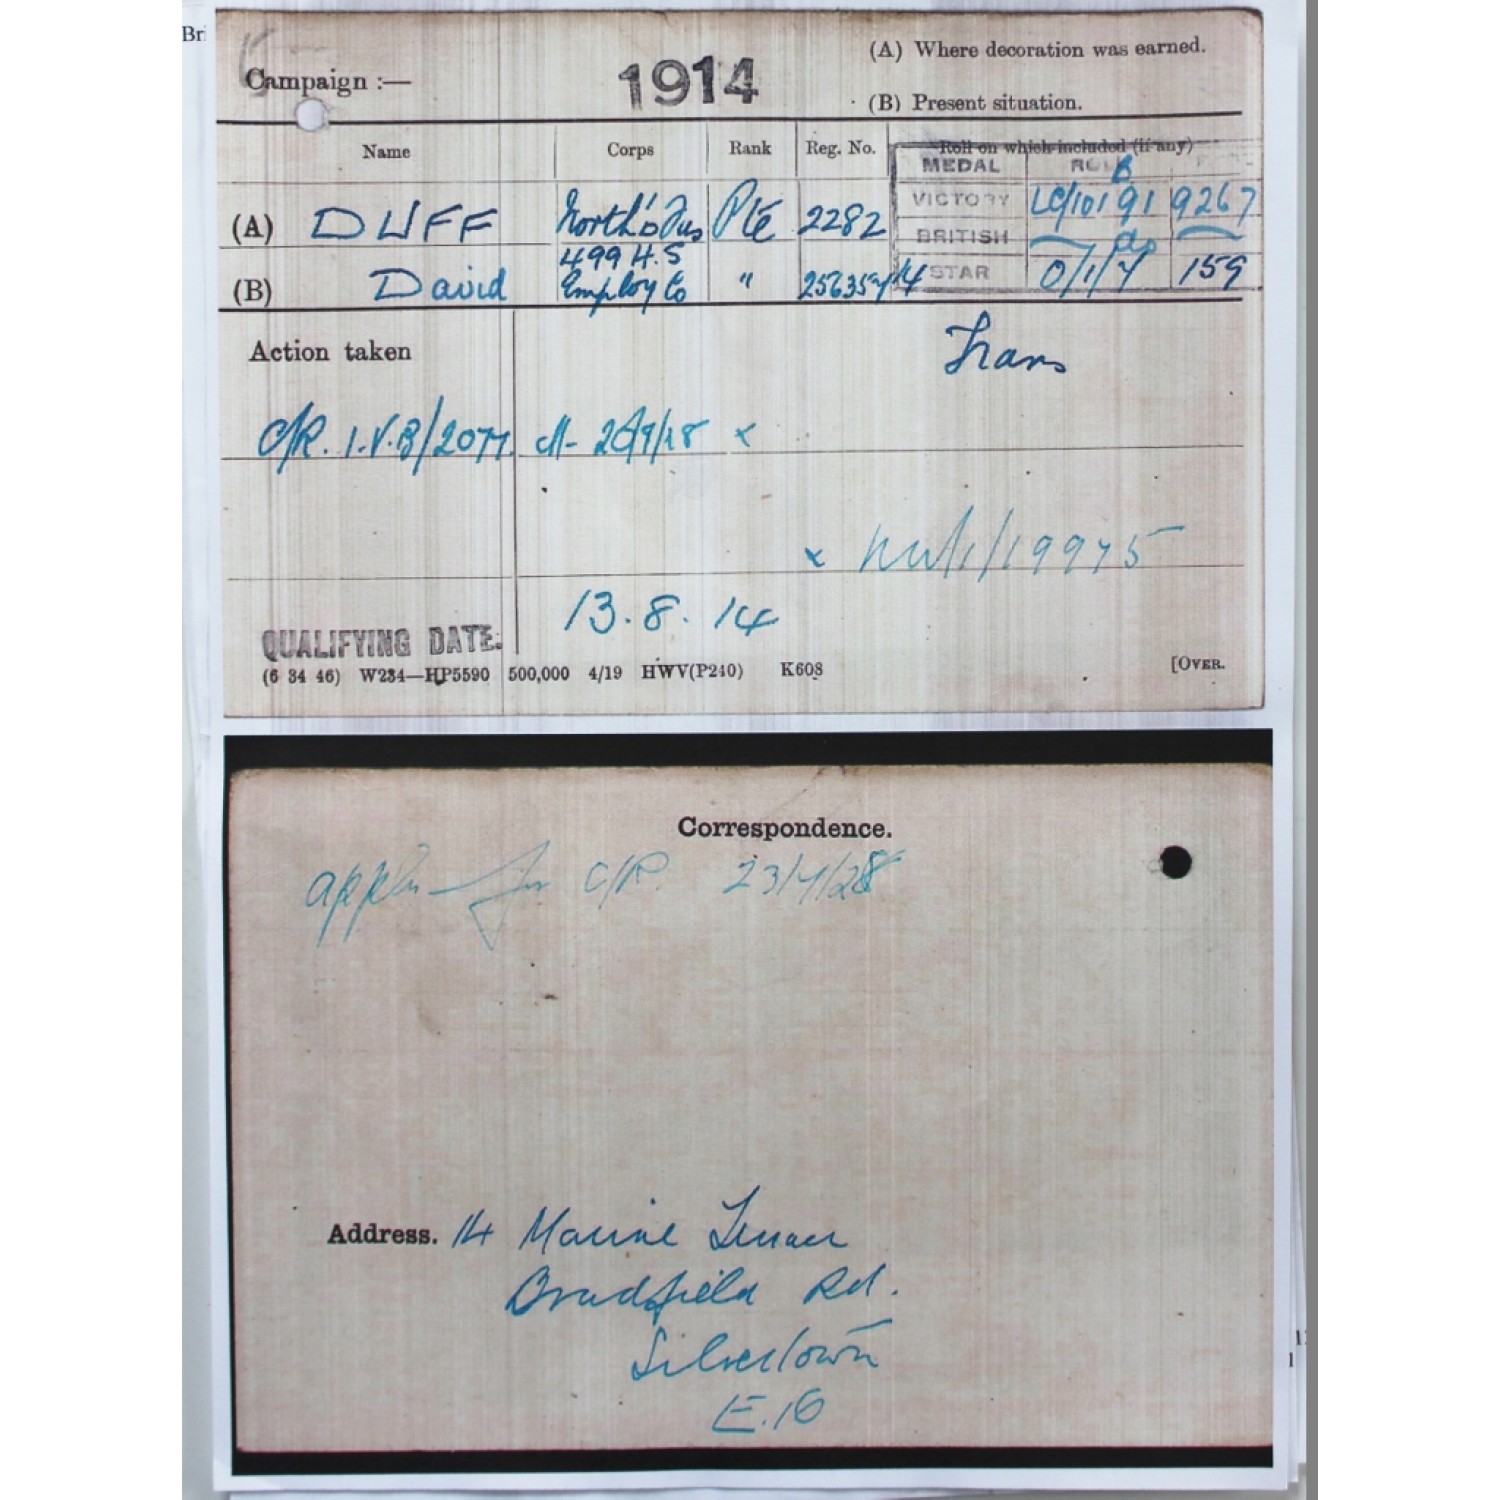 Bri
Campaign :— 1914 (A) Where decoration was earned.
(B) Present situation.
Name Corps Rank Reg. No. Roll on which included (if any)
MEDAL ROLL
B
(A) DUFF North'd Fus Pte 2282 VICTORY LC/101 91 9267
499 H.S BRITISH do
(B) David Employ Co " 256354 14 STAR 0/1/7 159
Action taken Trans
C/R. I.V.B/2077. 26/9/18 x
x 1/19975
QUALIFYING DATE. 13.8.14
(6 34 46) W234—HP5590 500,000 4/19 HWV(P240) K608 [OVER.
Correspondence.
appln for C/R. 23/4/28
Address. 14 Marine Terrace
Bradfield Rd.
Silvertown
E.16